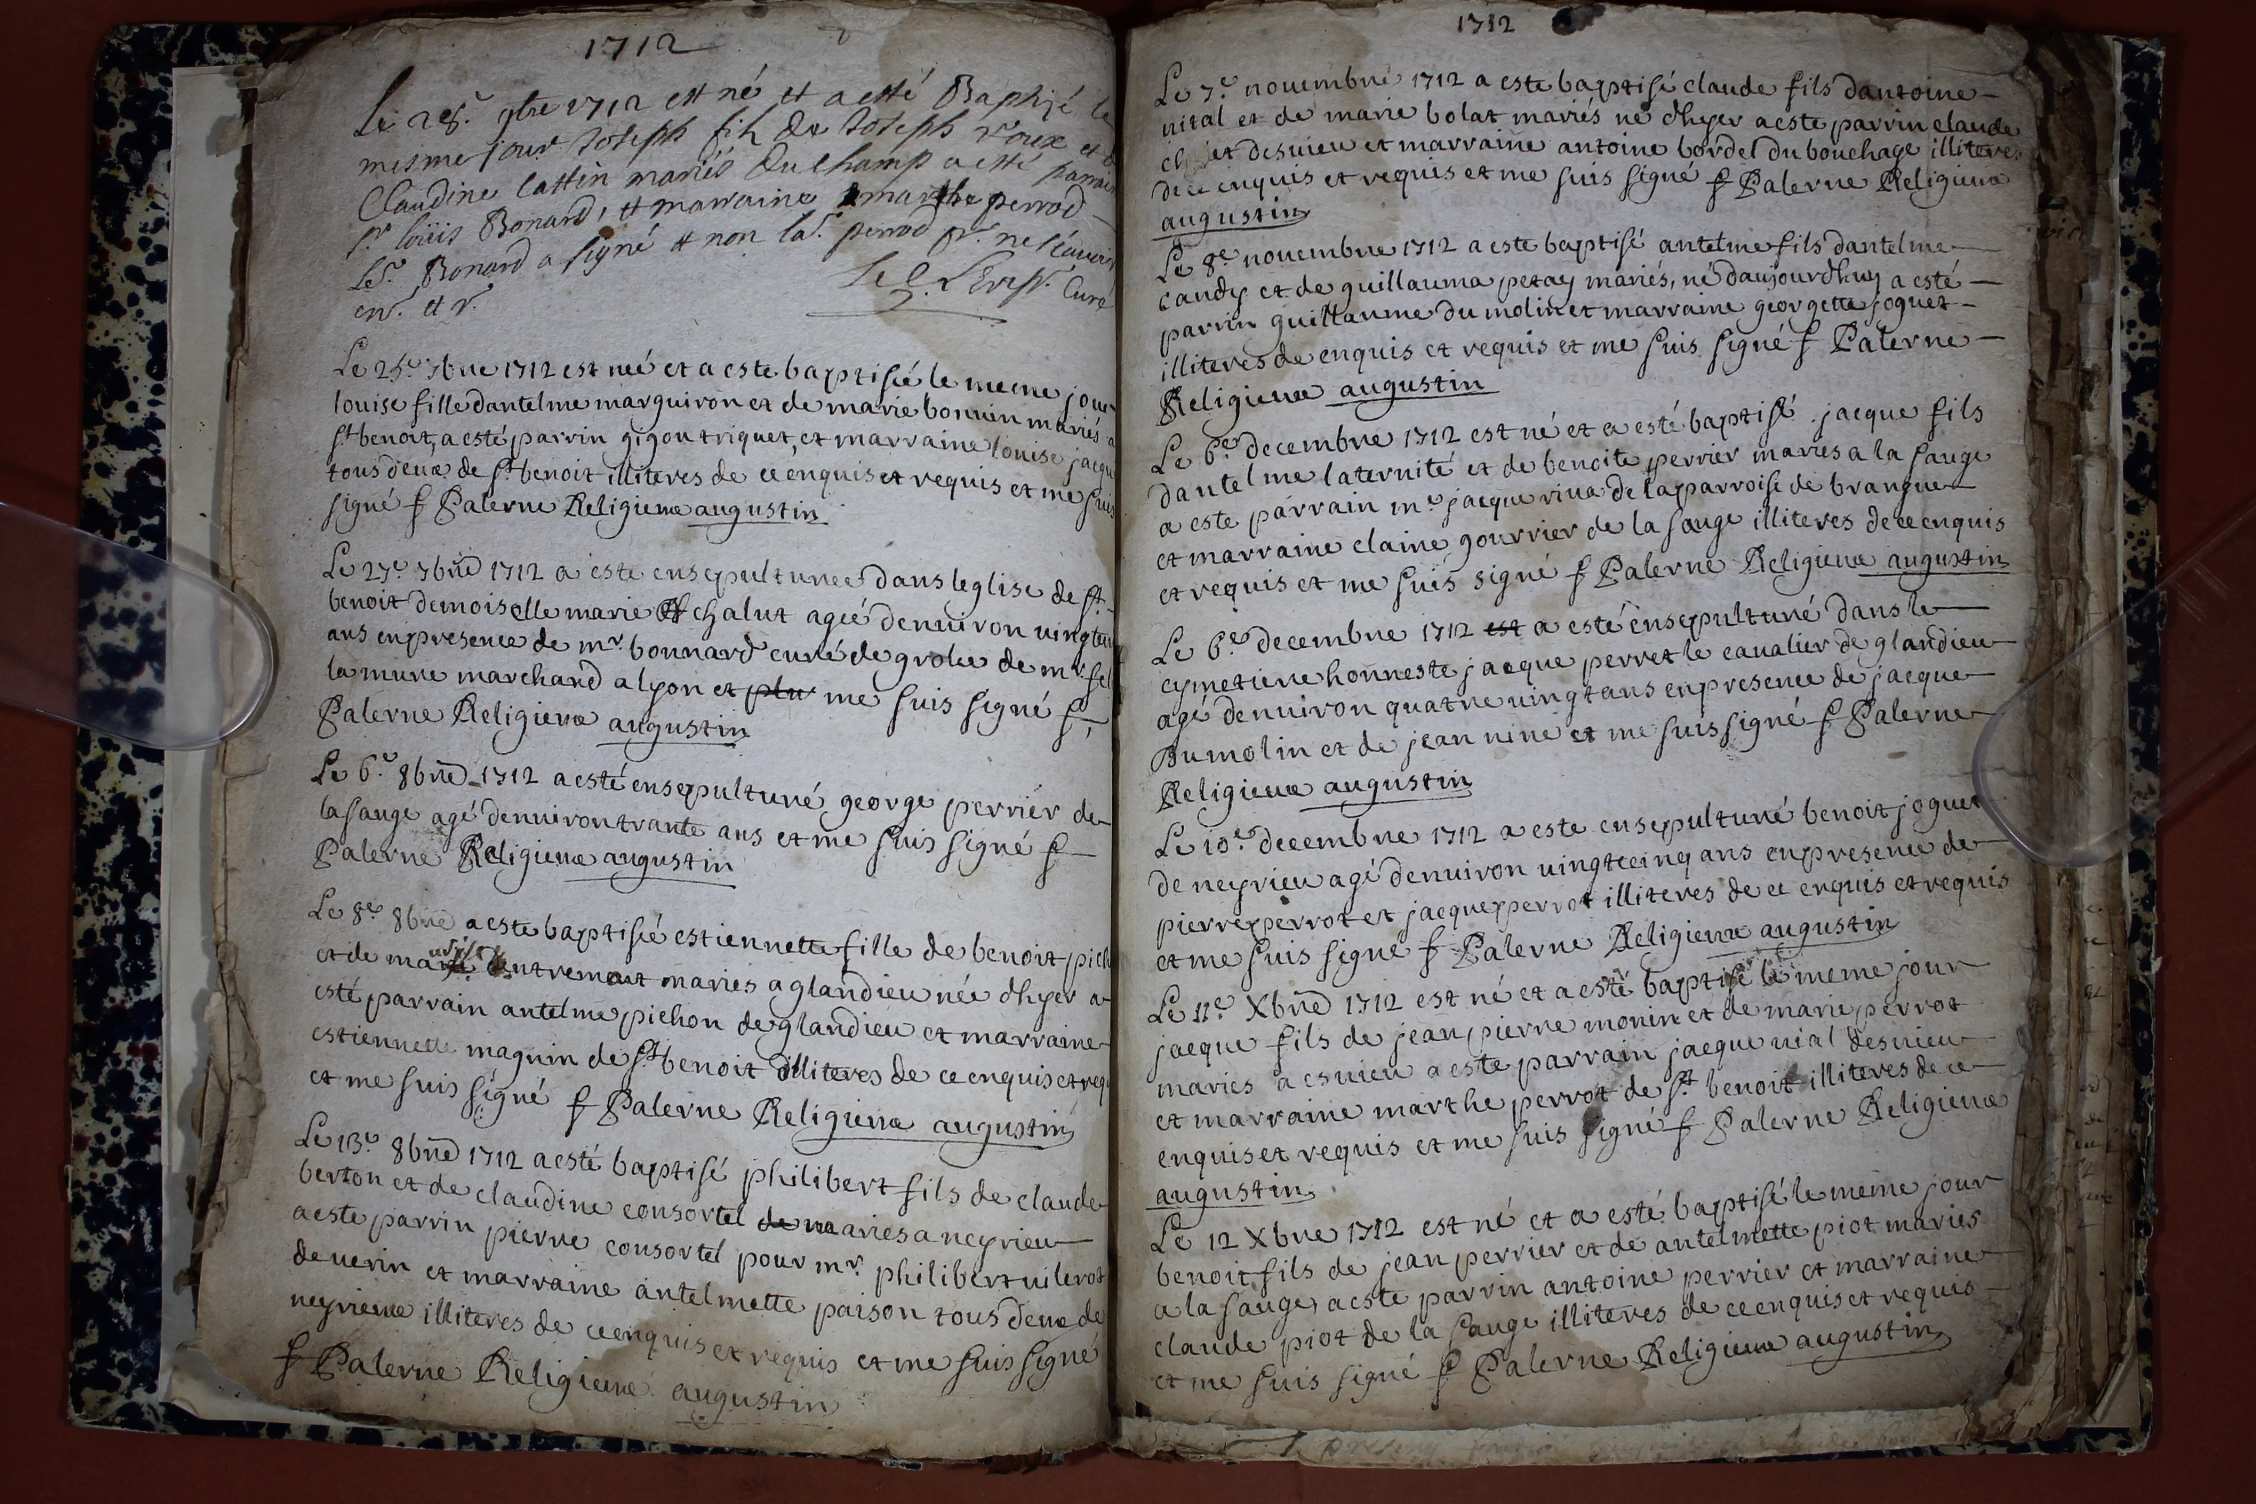 1712
Le 28e. 9bre 1712 est né et a esté Baptizé le
mesme jour Joseph fils de Joseph roux et d
Claudine Cattin mariés du Champ a esté parrain
Sr. loüis Bonard, et marraine marthe perrod
le Sr. Bonard a signé et non la d. perrod pr. ne sçavoir
en. et r. Curé
Le 25e 7bre 1712 est neé et a este baptiseé le meme jour
louise fille dantelme marguiron et de marie bonnin mariés a
st benoit, a esté parrin gigou triquet, et marraine louise jacqu
tous deux de st benoit illiteres de ce enquis et requis et me suis
signé f Palerne Religieux augustin
Le 27e 7bre 1712 a este ensepulturee dans leglise de st.
benoit demoiselle marie chalut ageé denuiron uingt
ans en presence de mr. bonnard curé de grolee de mr.
la mure marchand a lyon et plu me suis signé f,
Palerne Religieux augustin
Le 6e 8bre 1712 a esté ensepulturé george perrier de
la sauge agé denuiron trante ans et me suis signé f
Palerne Religieux augustin
Le 8e 8bre a este baptiseé estiennette fille de benoit pich
et de entremont mariés a glandieu née dhyer a
esté parrain antelme pichon de glandieu et marraine
estiennette magnin de st benoit illiteres de ce enquis et requ
et me suis signé f Palerne Religieux augustin
Le 13e 8bre 1712 a esté baptisé philibert fils de claude
berton et de claudine consortel de mariés a neyrieu
a este parrin pierre consortel pour mr. philibert uilerot
de uerin et marraine antelmette paison tous deux de
neyrieux illiteres de ce enquis et requis et me suis signé
f Palerne Religieux augustin
1712
Le 7e nouembre 1712 a este baptisé claude fils dantoine
uital et de marie bolat mariés né dhyer a este parrin claude
desuieu et marraine antoine bordel du bouchage illiteres
de ce enquis et requis et me suis signé f Palerne Religieux
augustin
Le 8e nouembre 1712 a este baptisé antelme fils dantelme
candy et de guillauma petay mariés, né daujourdhuy a esté
parrin guillaume du molin et marraine georgette joguet
illiteres de enquis et requis et me suis signé f Palerne
Religieux augustin
Le 6e decembre 1712 est né et a esté baptisé jacque fils
dantelme laternité et de benoite perrier mariés a la sauge
a este parrain me jacque riua de la parroise de brangue
et marraine claine gourrier de la sauge illiteres de ce enquis
et requis et me suis signé f Palerne Religieux augustin
Le 6e decembre 1712 est a esté ensepulturé dans le
cymetiere honneste jacque perret le caualier de glandieu
agé denuiron quatre uingt ans en presence de jacque
Dumolin et de jean nene et me suis signé f Palerne
Religieux augustin
Le 10e decembre 1712 a este ensepulturé benoit joguet
de neyrieu agé denuiron uingtcinq ans en presence de
pierre perrot et jacque perrot illiteres de ce enquis et requis
et me suis signé f Palerne Religieux augustin
Le 11e Xbre 1712 est né et a esté baptisé le meme jour
jacque fils de jean pierre monin et de marie perrot
mariés a esuieu a este parrain jacque uial desuieu
et marraine marthe perrot de st benoit illiteres de ce
enquis et requis et me suis signé f Palerne Religieux
augustin
Le 12 Xbre 1712 est né et a esté baptisé le meme jour
benoit fils de jean perrier et de antelmette piot mariés
a la sauge, a este parrin antoine perrier et marraine
claude piot de la sauge illiteres de ce enquis et requis
et me suis signé f Palerne Religieux augustin